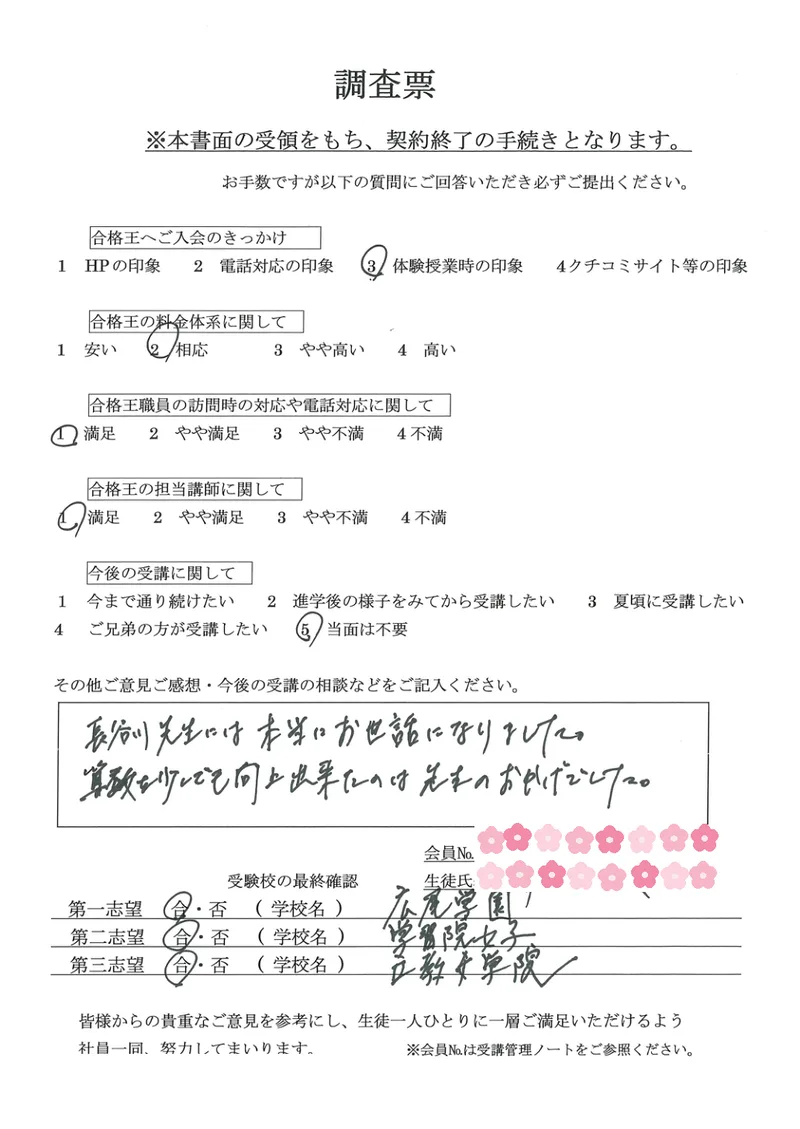 調査票
※本書面の受領をもち、契約終了の手続きとなります。
お手数ですが以下の質問にご回答いただき必ずご提出ください。
合格王へご入会のきっかけ
1 HPの印象 2 電話対応の印象 3 体験授業時の印象 4クチコミサイト等の印象
合格王の料金体系に関して
1 安い 2 相応 3 やや高い 4 高い
合格王職員の訪問時の対応や電話対応に関して
1 満足 2 やや満足 3 やや不満 4不満
合格王の担当講師に関して
1 満足 2 やや満足 3 やや不満 4不満
今後の受講に関して
1 今まで通り続けたい 2 進学後の様子をみてから受講したい 3 夏頃に受講したい
4 ご兄弟の方が受講したい 5 当面は不要
その他ご意見ご感想・今後の受講の相談などをご記入ください。
長谷川先生には本当にお世話になりました。
算数を少しでも向上出来たのは先生のおかげでした。
会員№
受験校の最終確認 生徒氏
第一志望 合・否 (学校名) 広尾学園
第二志望 合・否 (学校名) 学習院女子
第三志望 合・否 (学校名) 立教女学院
皆様からの貴重なご意見を参考にし、生徒一人ひとりに一層ご満足いただけるよう
社員一同、努力してまいります。 ※会員№は受講管理ノートをご参照ください。